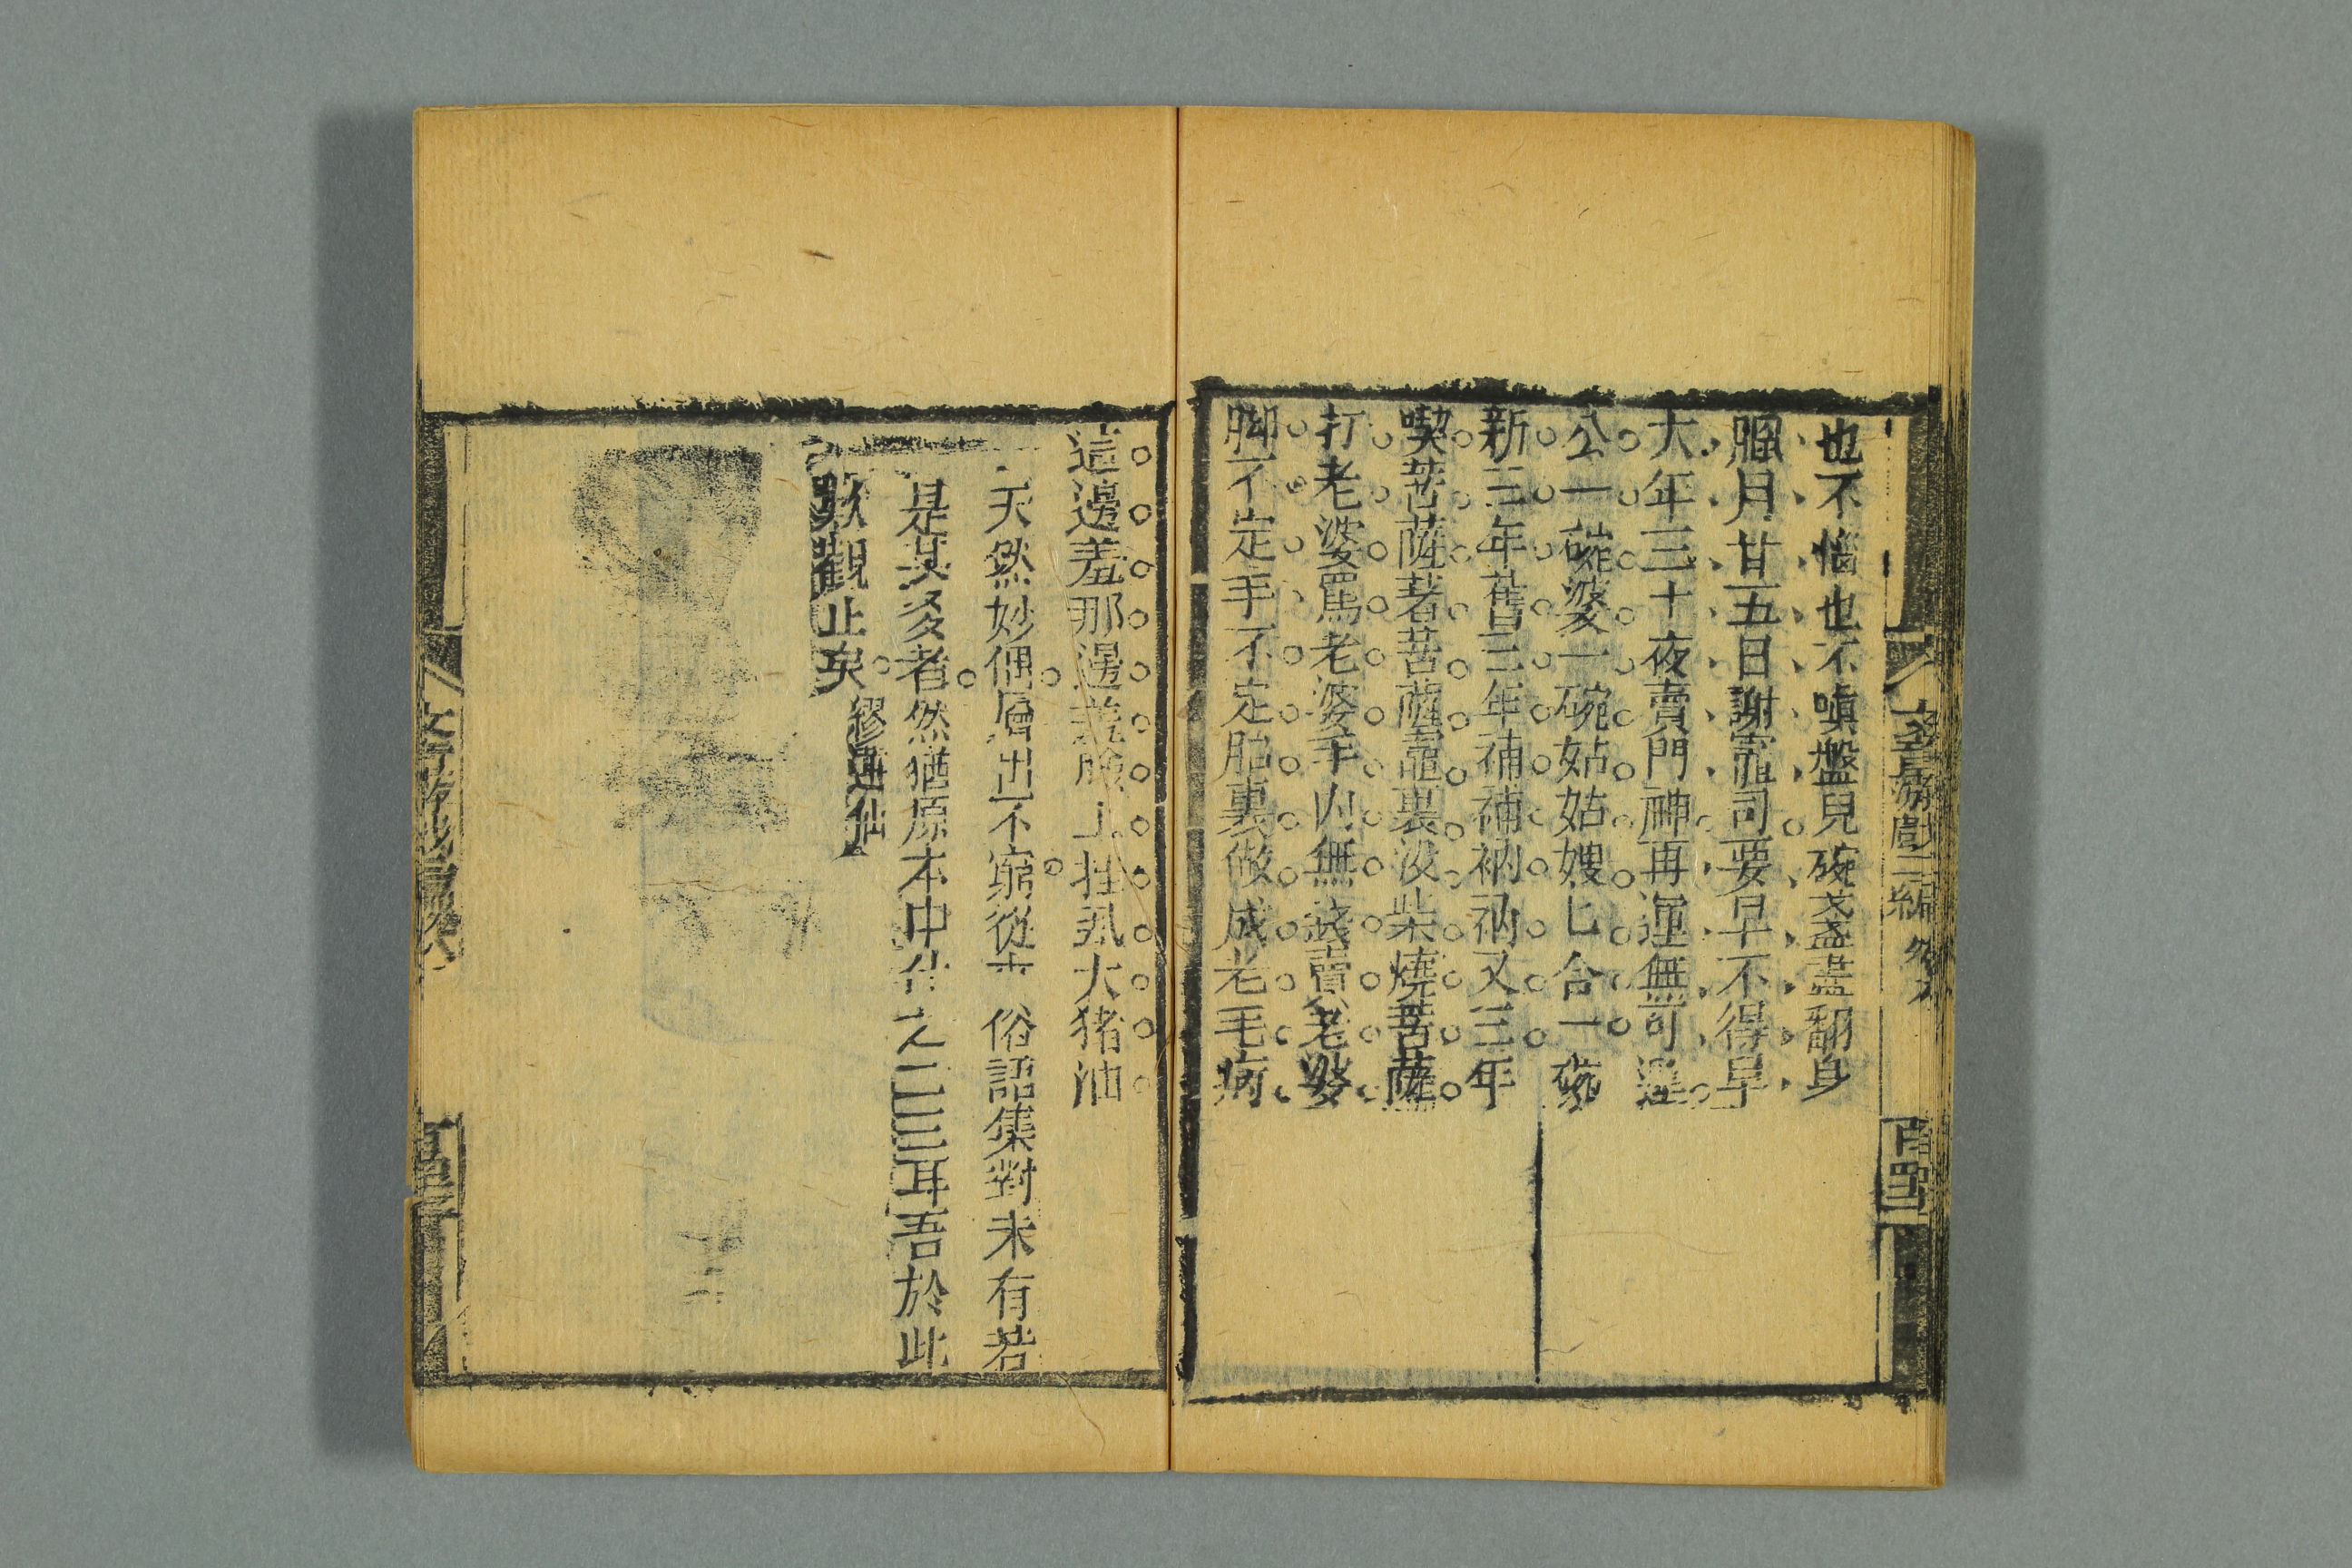 也不惱也不嗔盤兒碗盞盡翻身
臘月廿五日謝竈司要早不得早
大年三十夜賣門神再遲無可遲
公一碗婆一碗姑姑嫂七合一碗
新三年舊三年補補衲衲又三年
喫菩薩著菩薩竈裏沒柴燒菩薩
打老婆罵老婆手內無錢賣老婆
脚不定手不定胎裏做成老毛病
這邊羞那邊羞臉上拄瓜大猪油
天然妙偶層出不窮從 俗語集對未有若
是其多者然猶原本中什之二三耳吾於此
歎觀止矣
繆蓮仙
文章游戲二編 卷